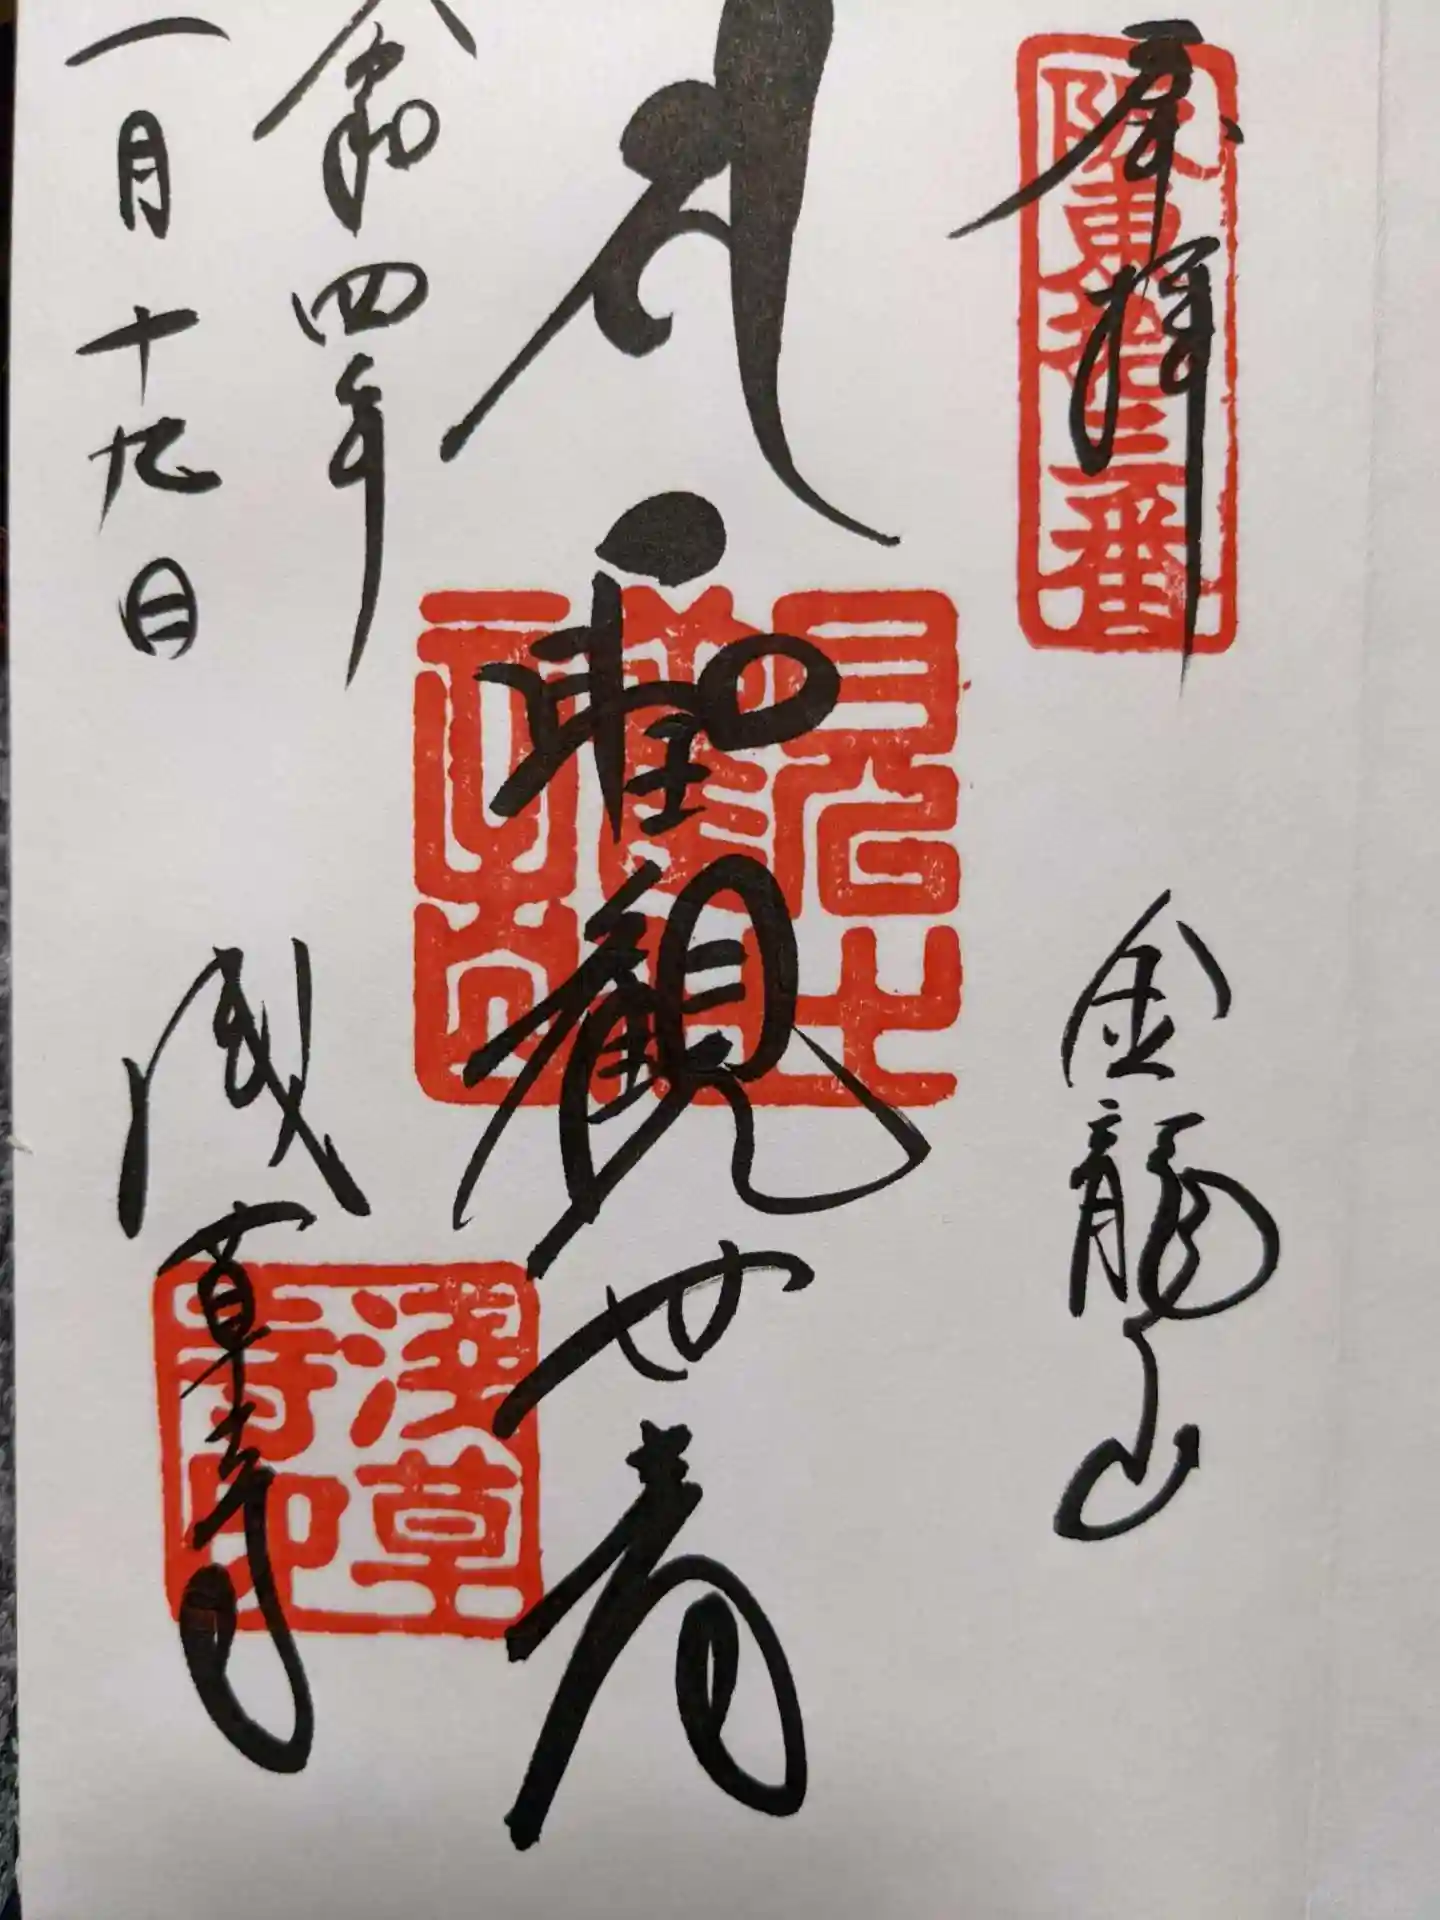 奉拝
阪東拾三番
金龍山
聖観世音
令和四年
一月十九日
浅草寺
浅草寺印